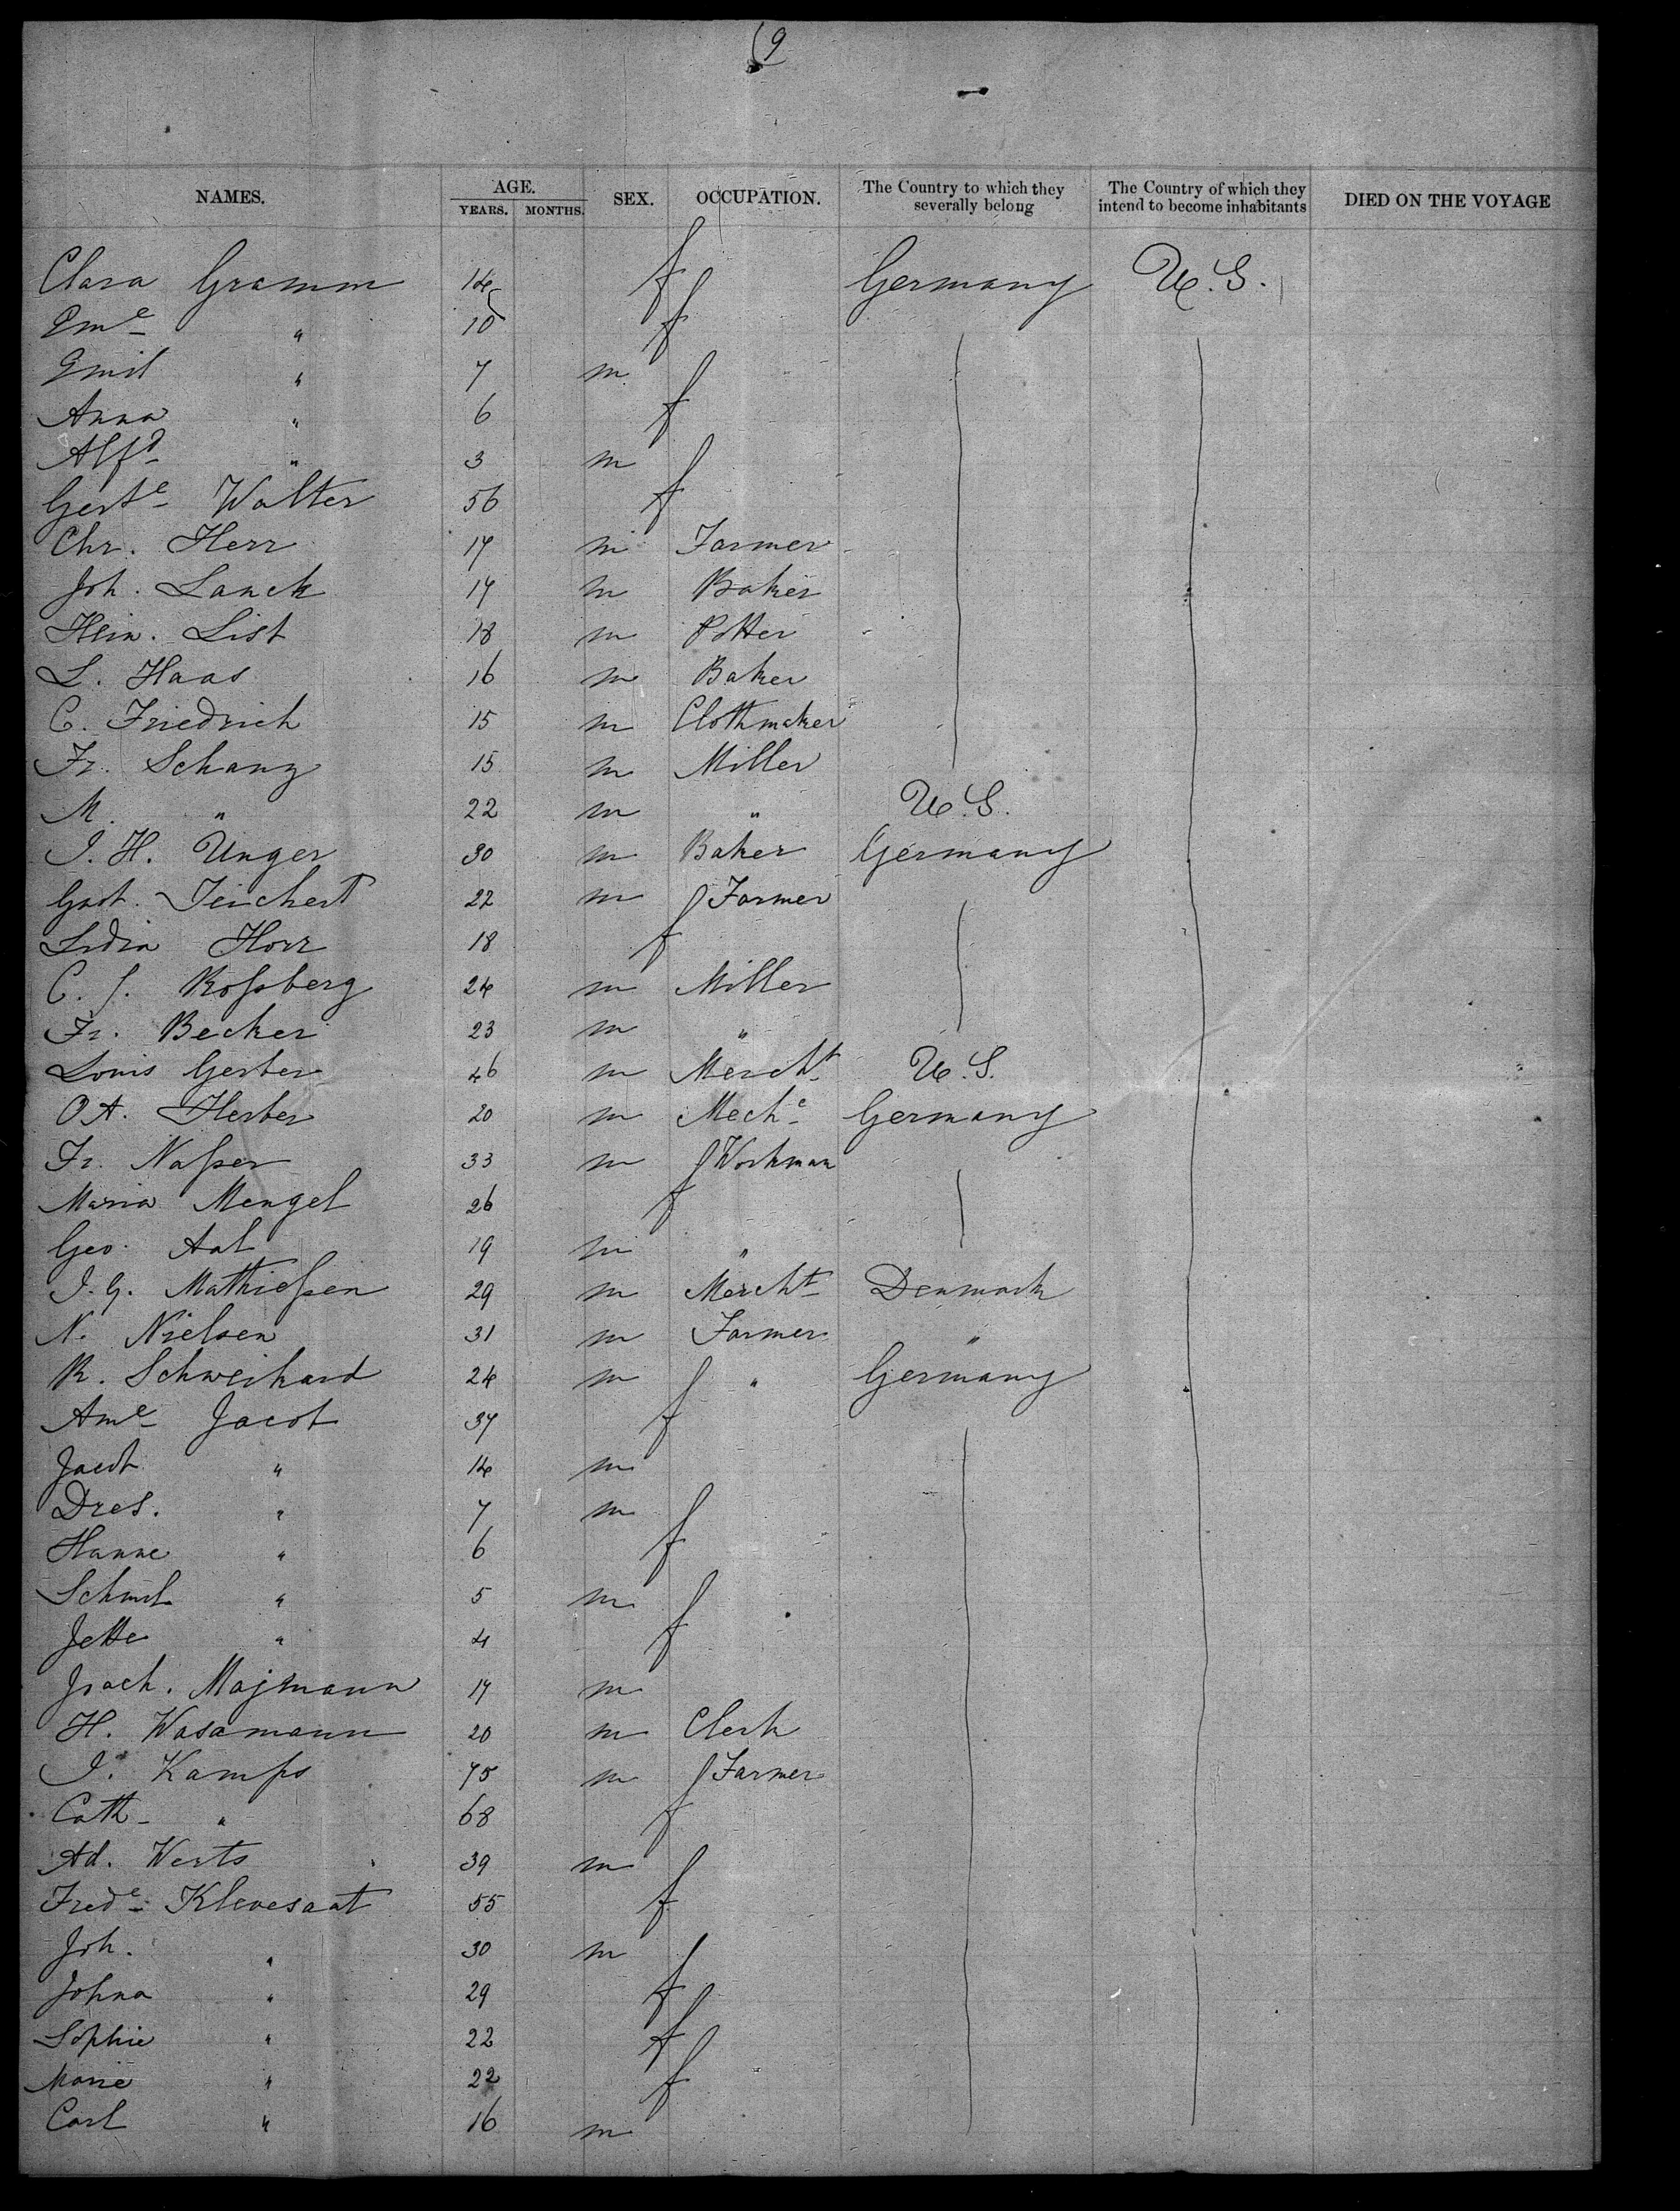 9
NAMES. AGE. YEARS. MONTHS. SEX. OCCUPATION. The Country to which they severally belong The Country of which they intend to become inhabitants DIED ON THE VOYAGE
Clara Gramm 14 f Germany U.S.
Eme " 10 f
Emil " 7 m
Anna " 6 f
Alfd " 3 m
Gerte Walter 56 f
Chr. Herr 17 m Farmer
Joh. Lanck 17 m Baker
Hein. List 18 m Potter
L. Haas 16 m Baker
C. Friedrich 15 m Clothmaker
Fr. Schanz 15 m Miller
M. " 22 m " U.S.
J. H. Unger 30 m Baker Germany
Gust. Teichert 22 m Farmer
Lidia Horr 18 f
C. J. Roßberg 24 m Miller
Fr. Becker 23 m "
Louis Gerber 46 m Mercht U.S.
O A. Herber 20 m Meche Germany
Fr. Naßer 33 m Workman
Maria Mengel 26 f
Geo. Aal 19 m "
J. G. Mathießen 29 m Mercht Denmark
N. Nielsen 31 m Farmer "
R. Schweikard 24 m " Germany
Ame Jacob 37 f
Jacob " 14 m
Dres. " 7 m
Hanne " 6 f
Schml " 5 m
Jette " 4 f
Majmann 17 m
H. Wasamann 20 m Clerk
J. Kamps 75 m Farmer
Cath " 68 f
Ad. Werts 39 m
Frede Klevesaat 55 f
Joh. " 30 m
Johna " 29 f
Sophie " 22 f
Marie " 22 f
Carl " 16 m